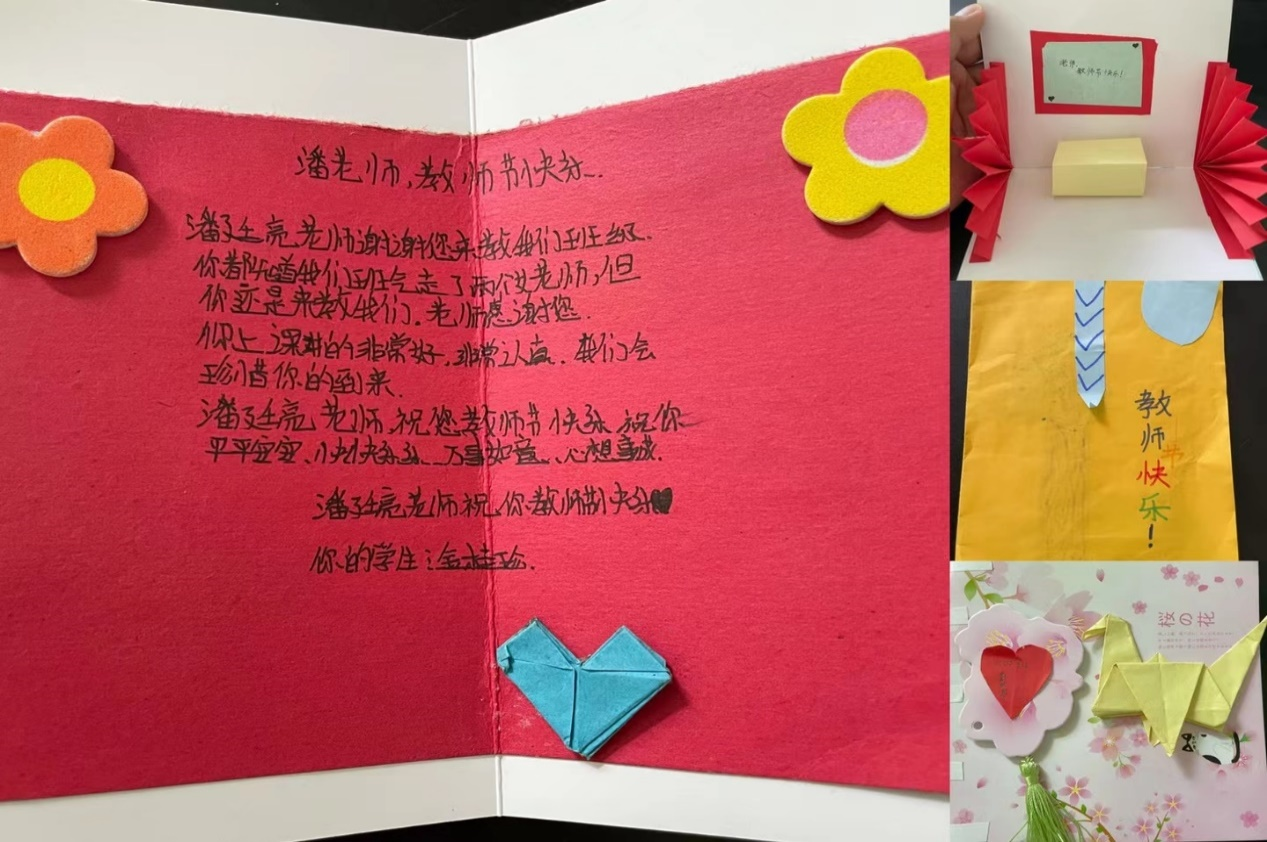 潘老师,教师节快乐.
潘廷亮老师谢谢您来教我们班班级.
你都知道我们班气走了两个女老师,但
你还是来教我们.老师感谢您.
你上课讲的非常好,非常认真.我们会
珍惜你的到来.
潘廷亮老师,祝您教师节快乐 祝你
平平安安、快快乐乐、万事如意、心想事成.
潘廷亮老师祝你教师节快乐
你的学生:
老师,
教师节快乐!
教师节快乐!
桜の花